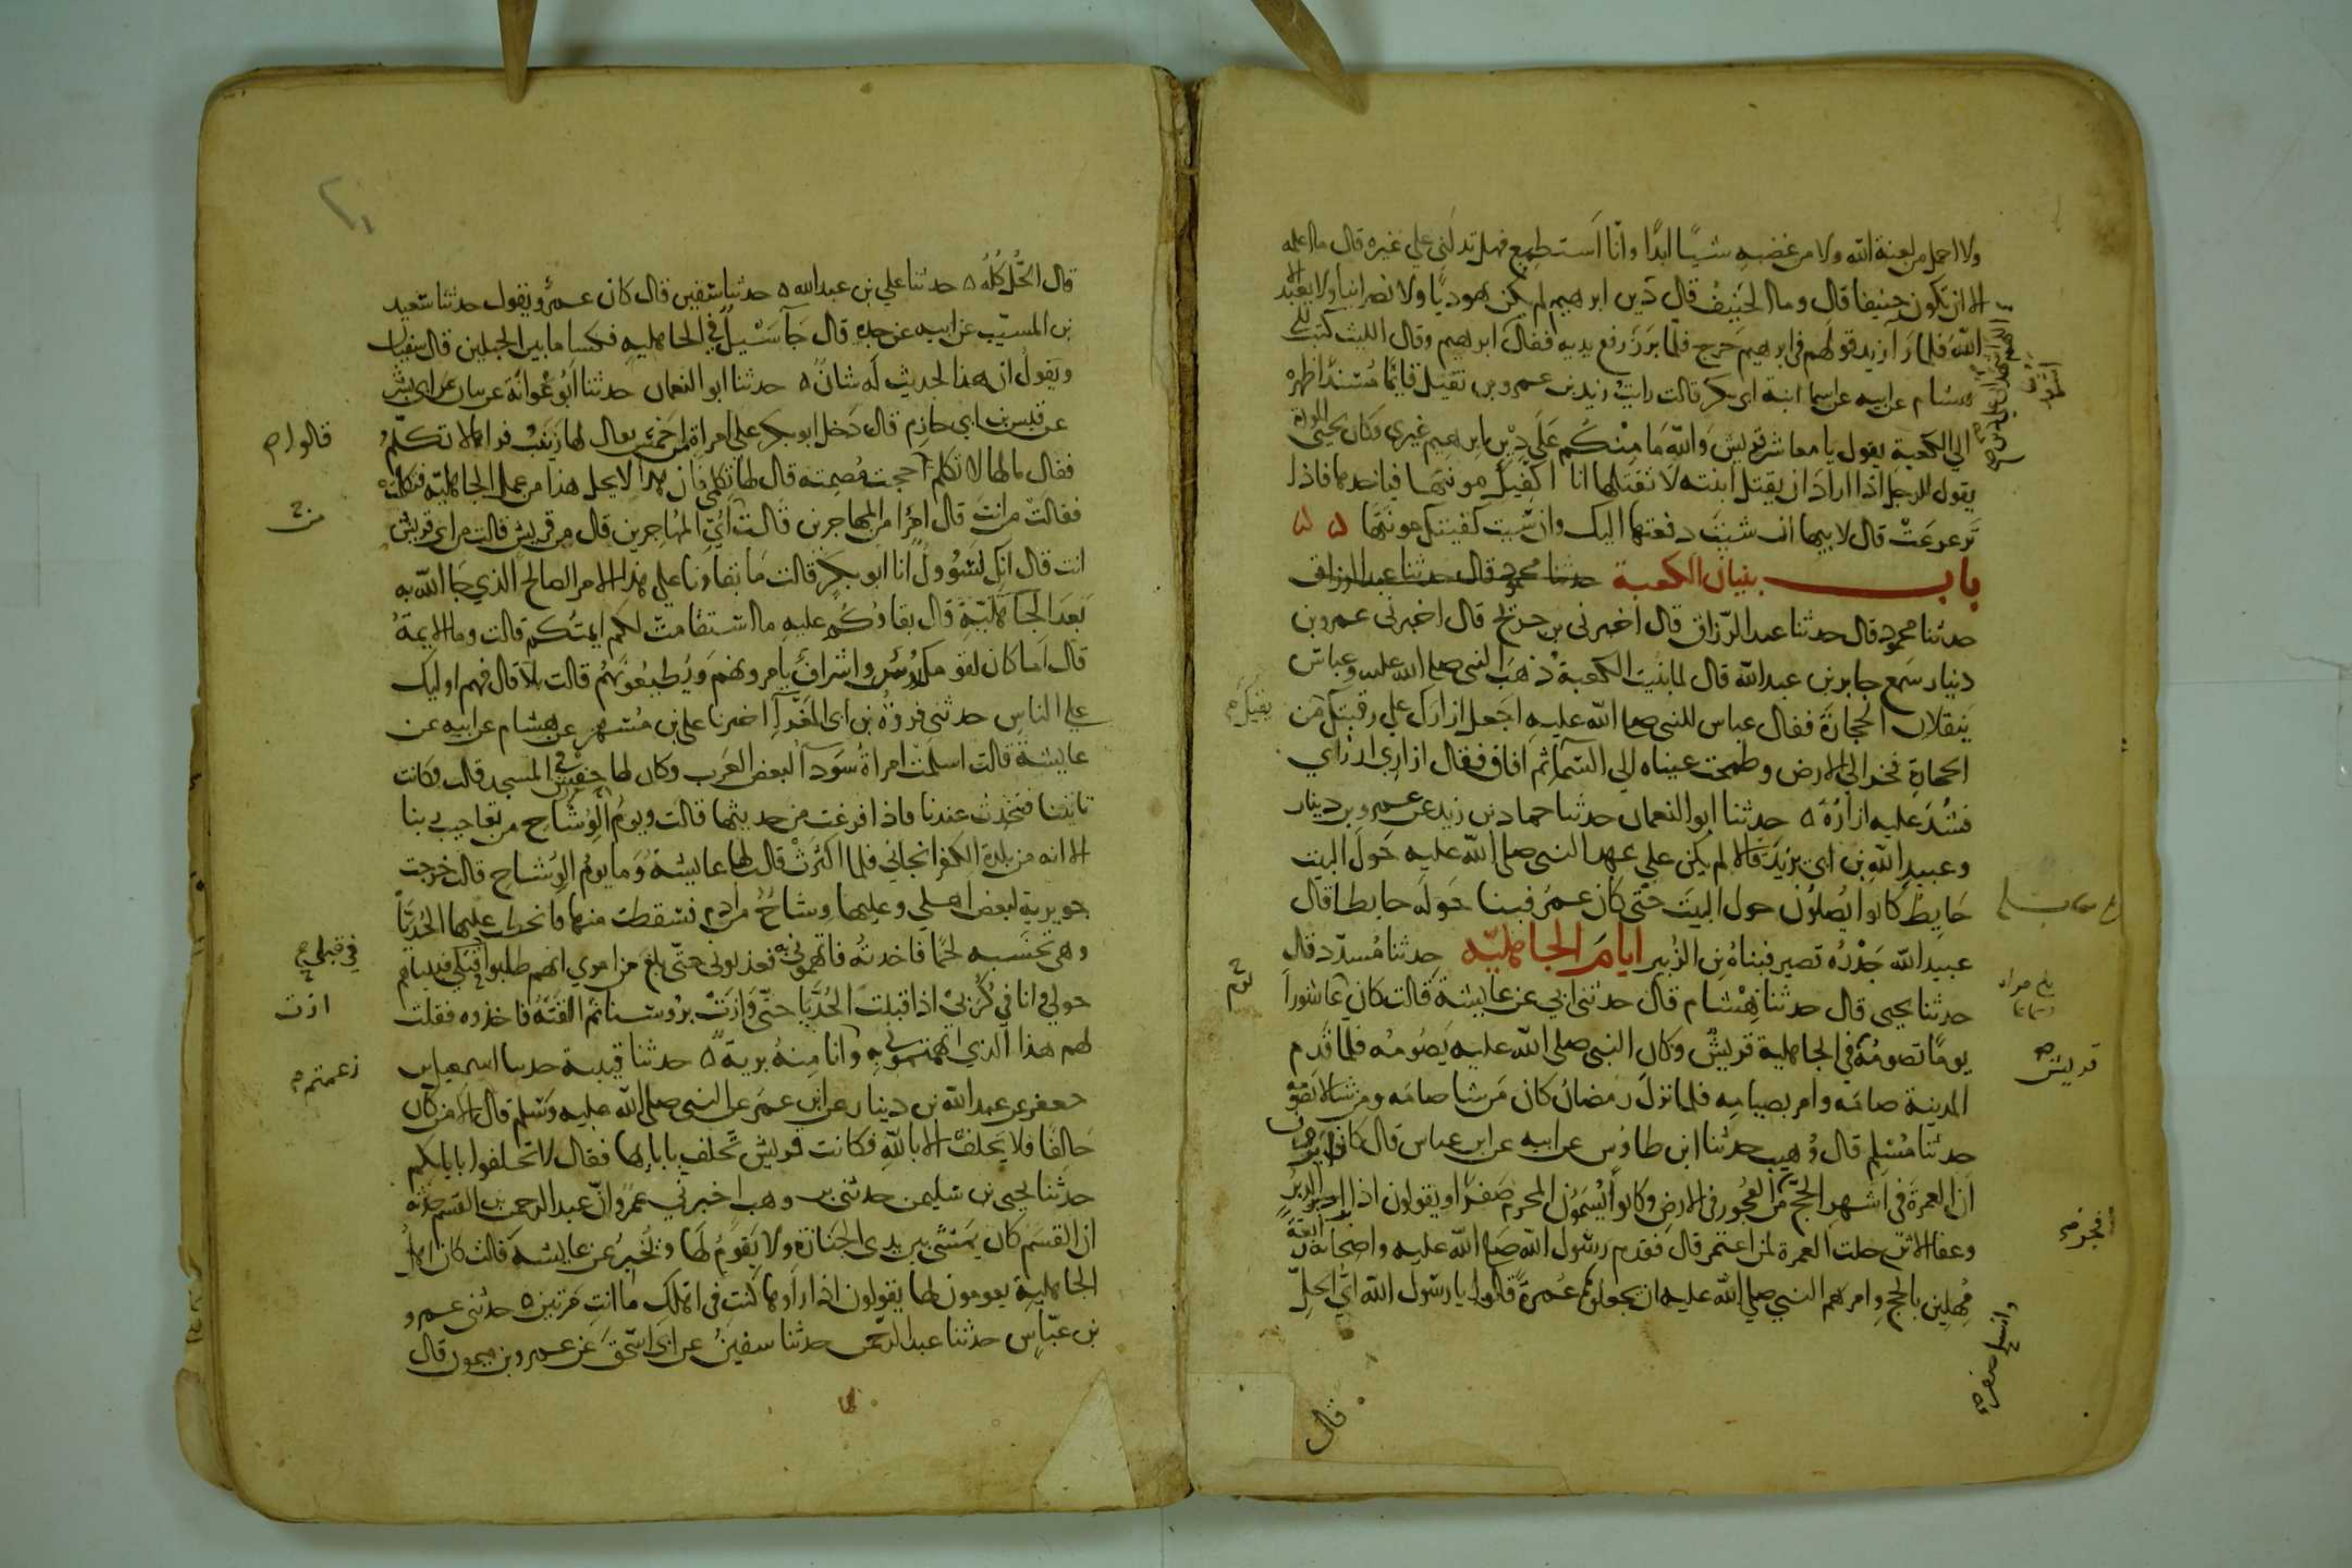 ولا احمل من لعنة الله ولا من غضبه شيئا ابدا وانا استطيع فهل تدلني على غيره قال ما اعلمه
الا ان تكون حنيفا قال وما الحنيف قال دين ابرهيم لم يكن يهوديا ولا نصرانيا ولا يعبد الا
الله فلما رآ زيد قولهم في ابرهيم خرج فلما برز رفع يديه فقال وقال الليث كتب الي
هشام عن ابيه عن اسما ابنة ابي بكر قالت رايت زيد بن عمرو بن نفيل قايما مسندا ظهره
الي الكعبة يقول يا معاشر قريش والله ما منكم على دين ابرهيم غيري وكان يحيي الموودة
يقول للرجل اذا اراد ان يقتل ابنته لا تقتلها انا اكفيك مونتها فياخدها فاذا
ترعرعت قال لابيها ان شيت دفعتها اليك وان شيت كفيتك مونتها ه ه
باب بنيان الكعبة حدثنا محمود قال حدثنا عبد الرزاق
حدثنا محمود قال حدثنا عبد الرزاق قال اخبرني بن جريج قال اخبرني عمرو بن
دينار سمع جابر بن عبد الله قال لما بنيت الكعبة ذهب النبي صلى الله عليه وعباس
ينقلان الحجارة فقال عباس للنبي صلى الله عليه اجعل ازارك على رقبتك من
الحجارة فخر الى الارض وطمحت عيناه الى السما ثم افاق فقال ازاري ازاري
فشد عليه ازاره ه حدثنا ابو النعمان حدثنا حماد بن زيد عن عمرو بن دينار
وعبيد الله بن ابي يزيد قالا لم يكن على عهد النبي صلى الله عليه حول البيت
حايط كانوا يصلون حول البيت حتى كان عمر فبنا حوله حايطا قال
عبيد الله جدره قصير فبناه بن الزبير ايام الجاهلية حدثنا مسدد قال
حدثنا يحيى قال حدثنا هشام قال حدثني ابي عن عايشة قالت كان عاشورا
يوما تصومه في الجاهلية قريش وكان النبي صلى الله عليه يصومه فلما قدم
المدينة صامه وامر بصيامه فلما نزل رمضان كان من شا صامه ومن شا لا يصومه
حدثنا مسلم قال وهيب حدثنا ابن طاوس عن ابيه عن ابن عباس قال كانوا يرون
ان العمرة في اشهر الحج من الفجور في الارض وكانوا يسمون المحرم صفرا ويقولون اذا برا الدبر
وعفا الاثر حلت العمرة لمن اعتمر قال فقدم رسول الله صلى الله عليه واصحابه رابعة
مهلين بالحج وامرهم النبي صلى الله عليه ان يجعلوها عمرة قالوا يا رسول الله اي الحل
قال
يقيك
قريش
وانسلخ صفر
قال الحل كله ه حدثنا علي بن عبد الله ه حدثنا سفين قال كان عمرو يقول حدثنا سعيد
بن المسيب عن ابيه عن جده قال جآ سيل في الجاهلية فكسا ما بين الجبلين قال سفيان
ويقول ان هذا لحديث له شان ه حدثنا ابو النعمان حدثنا ابو عوانة عن بيان عن ابي بشر
عن قيس بن ابي حازم قال دخل ابو بكر على امراة من احمس يقال لها زينب فراها لا تكلم
فقال ما لها لا تكلم حجت مصمتة قال لها تكلمي فان هذا لا يحل هذا من عمل الجاهلية فتكلمت
فقالت من انت قال امرأ من المهاجرين قالت اي المهاجرين قال من قريش قالت من اي قريش
انت قال انك لسؤول انا ابو بكر قالت ما بقاونا على هذا الامر الصالح الذي جا الله به
بعد الجاهلية قال بقاوكم عليه ما استقامت لكم ايمتكم قالت وما الايمة
قال اما كان لقومك روس واشراف يامرونهم ويطيعونهم قالت بلا قال فهم اوليك
على الناس حدثني فروة بن ابي المغرآ اخبرنا علي بن مسهر عن هشام عن ابيه عن
عايشة قالت اسلمت امراة سودآ لبعض العرب وكان لها حفش في المسجد قالت فكانت
تاتينا فتحدث عندنا فاذا فرغت من حديثها قالت ويوم الوشاح من تعاجيب ربنا
الا انه من بلدة الكفر انجاني فلما اكثرت قالت لها عايشة وما يوم الوشاح قالت خرجت
جويرية لبعض اهلي وعليها وشاح من ادم فسقطت منها فانحطت عليها الحديا
وهي تحسبه لحما فاخدته فاتهموني به فعذبوني حتى بلغ من امري انهم طلبوا قبلي فبينا هم
حولي وانا في كربي اذ اقبلت الحديا حتى وازت بروسنا ثم القته فاخذوه فقلت
لهم هذا الذي اتهمتموني به وانا منه برية ه حدثنا قتيبة حدثنا اسمعيل بن
جعفر عن عبد الله بن دينار عن ابن عمر عن النبي صلى الله عليه وسلم قال الا من كان
حالفا فلا يحلف الا بالله فكانت قريش تحلف بابايها فقال لا تحلفوا باباكم
حدثنا يحيى بن سليمن حدثني بن وهب اخبرني عمرو ان عبد الرحمن بن القسم حدثه
ان القسم كان يمشي بين يدي الجنازة ولا يقوم لها ويخبر عن عايشة قالت كان اهل
الجاهلية يقومون لها يقولون اذا راوها كنت في اهلك ما انت مرتين ه حدثني عمرو
بن عباس حدثنا عبد الرحمن حدثنا سفين عن ابي اسحق عن عمرو بن ميمون قال
قالوا
من
في قبلي
ازت
زعمتم